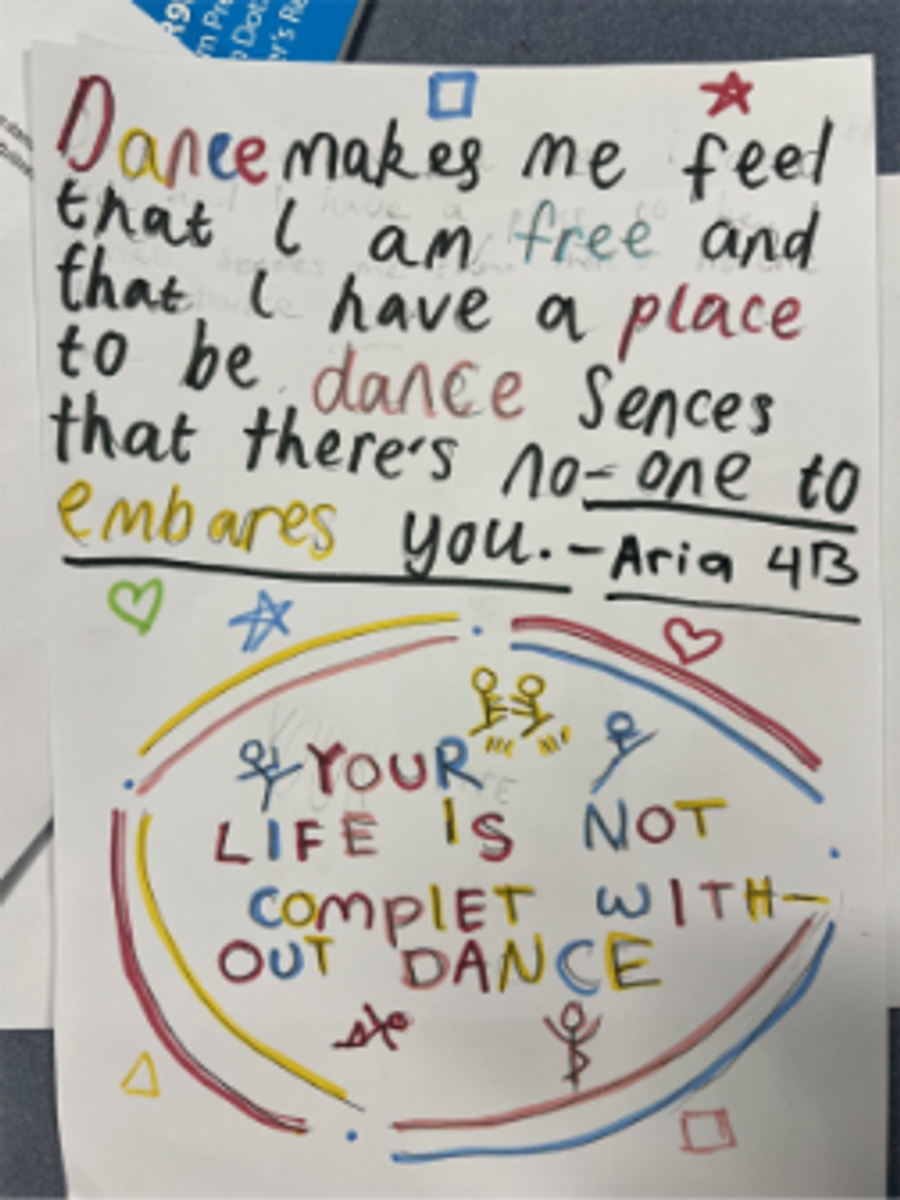 Dance makes me feel
that I am free and
that I have a place
to be dance Sences
that there's no-one to
embares you. - Aria 4B
YOUR
LIFE IS NOT
COMPLET WITH-
OUT DANCE